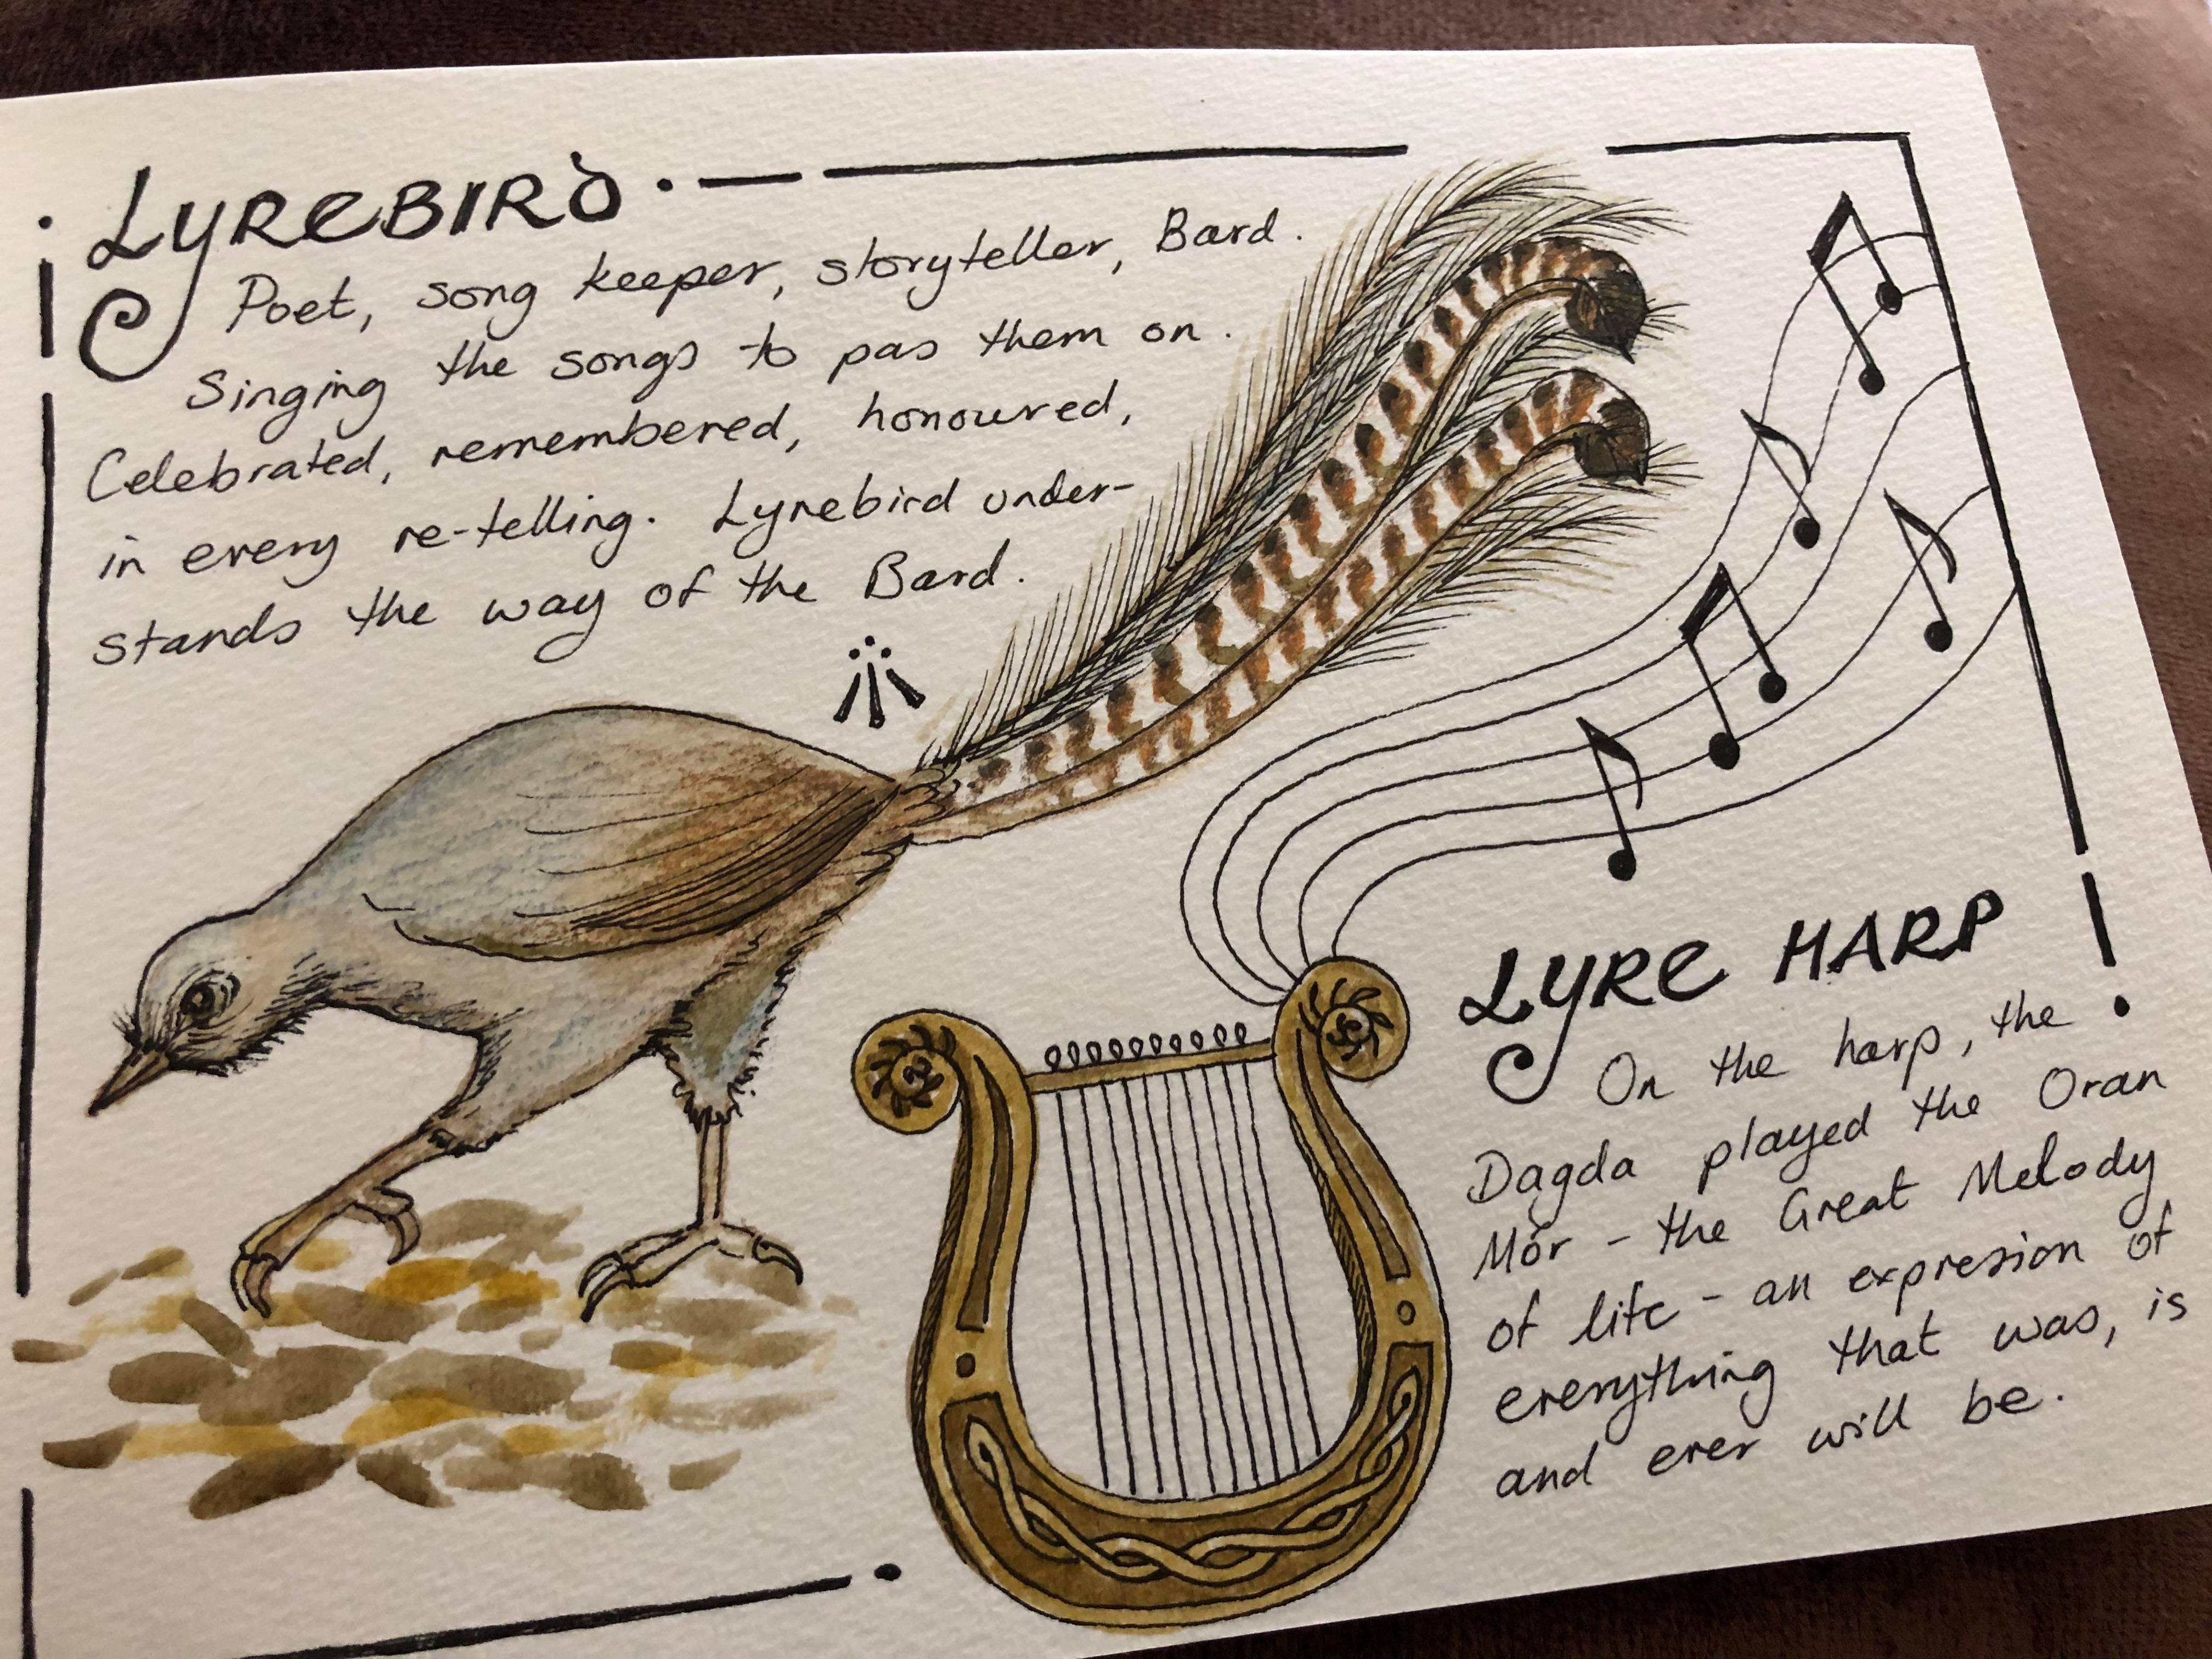 LYREBIRD
Poet, song keeper, storyteller, Bard.
Singing the songs to pas them on.
Celebrated, remembered, honoured,
in every re-telling. Lyrebird under-
stands the way of the Bard.
LYRE HARP
On the harp, the
Dagda played the Oran
Mór - the Great Melody
of life - an expresion of
everything that was, is
and ever will be.